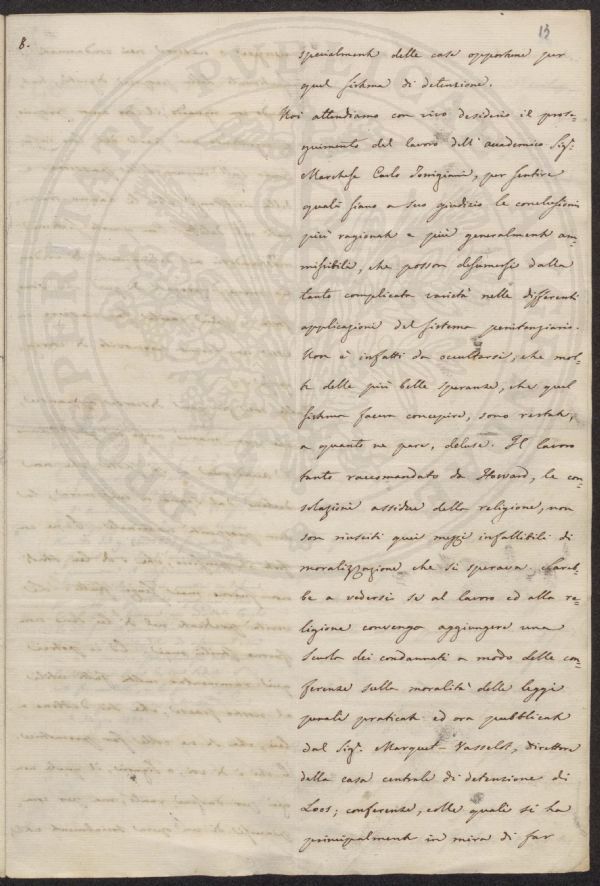 8.
13
specialmente delle case opportune per
quel sistema di detenzione.
Noi attendiamo con vivo desiderio il prose-
guimento del lavoro dell'accademico Sigr.
Marchese Carlo Torrigiani, per sentire
quali siano a suo giudizio le conclusioni
più ragionate e più generalmente am-
missibili, che posson desumersi dalla
tanto complicata varietà nelle differenti
applicazioni del sistema penitenziario.
Non è infatti da occultarsi, che mol-
te delle più belle speranze, che quel
sistema faceva concepire, sono restate,
a quanto ne pare, deluse. Il lavoro
tanto raccomandato da Howard, le con-
solazioni assidue della religione, non
son riusciti quei mezzi infallibili di
moralizzazione che si sperava. Sareb-
be a vedersi se al lavoro ed alla re-
ligione convenga aggiungere una
scuola dei condannati a modo delle con-
ferenze sulla moralità delle leggi
penali praticate ed ora pubblicate
dal Sigr. Marquet-Vasselot, direttore
della casa centrale di detenzione di
Loos; conferenze, colle quali si ha
principalmente in mira di far